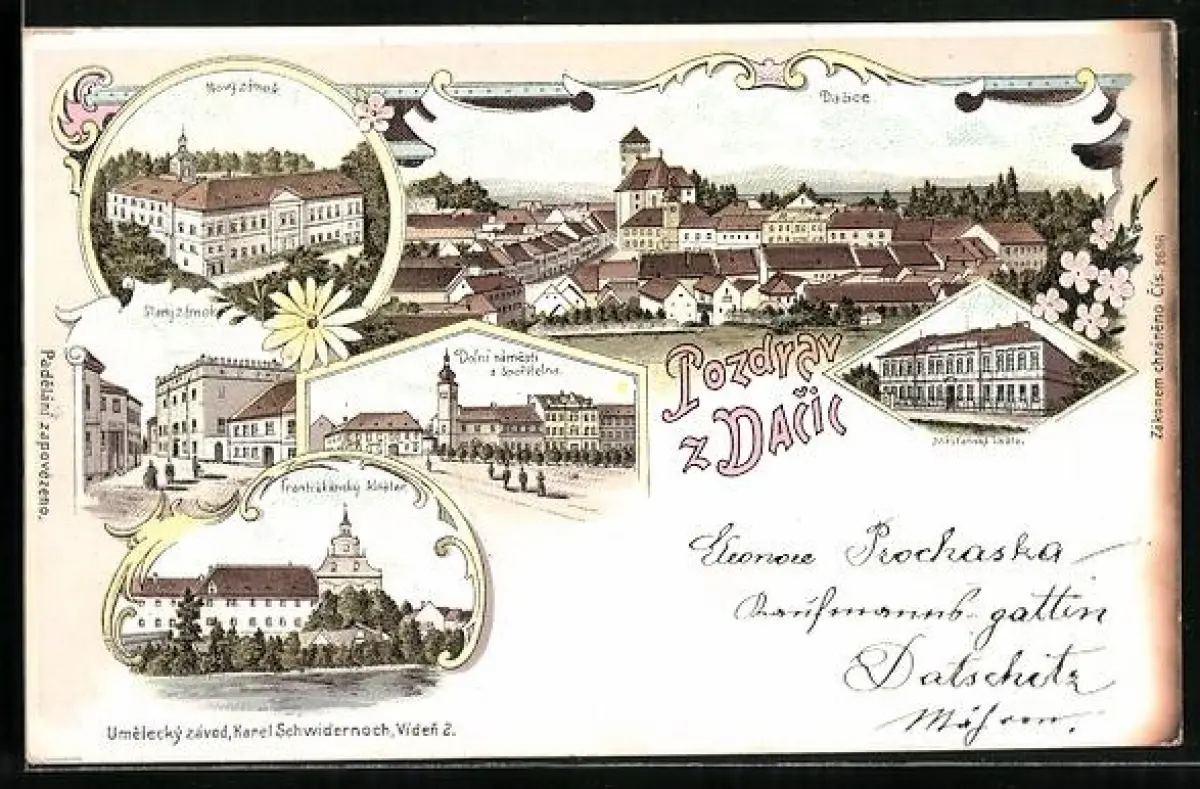 Nový zámek
Dačice.
Starý zámek
Dolní náměstí
a spořitelna.
Pozdrav
z Dačic
Františkánský klášter.
Padělání zapovězeno.
Zákonem chráněno Čís.
Eleonore Prochaska
Kaufmanns gattin
Datschitz
Mähren.
Umělecký závod, Karel Schwidernoch, Vídeň 2.